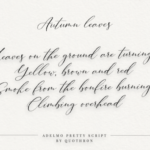 Autumn leaves
Leaves on the ground are turning
Yellow, brown and red
Smoke from the bonfire burning
Climbing overhead
ADELMO PRETTY SCRIPT
BY